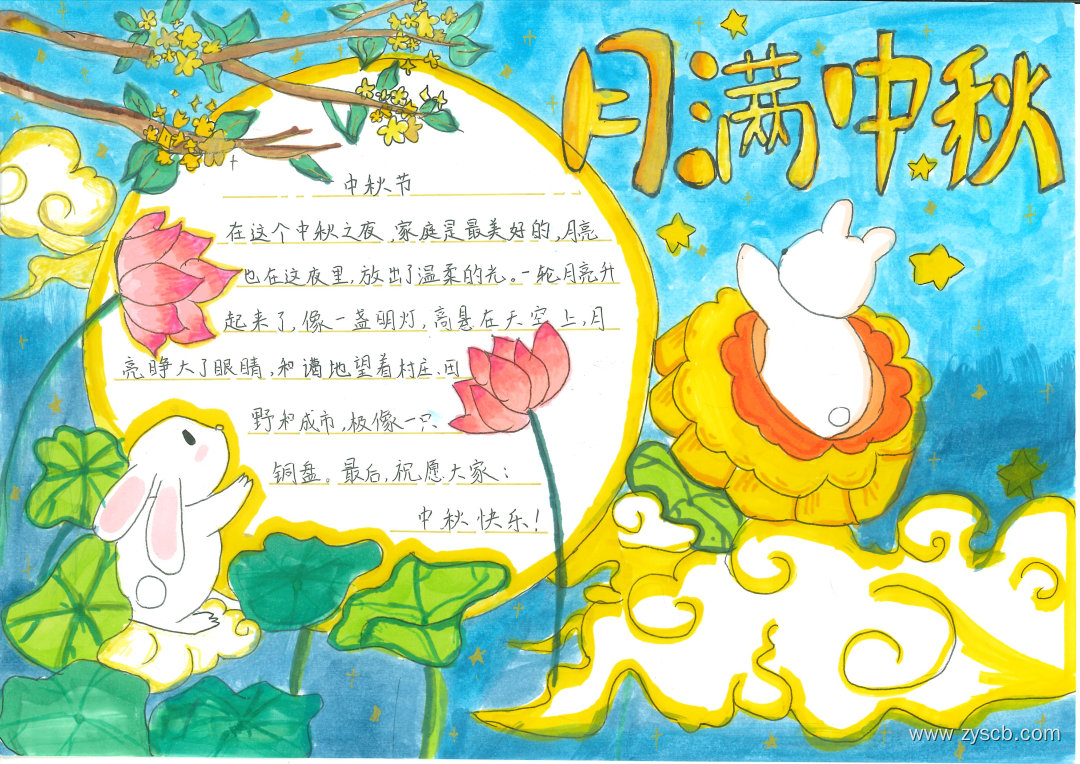 月满中秋
中秋节
在这个中秋之夜,家庭是最美好的,月亮
也在这夜里,放出了温柔的光。一轮月亮升
起来了,像一盏明灯,高悬在天空上,月
亮睁大了眼睛,和谐地望着村庄、田
野和成市,极像一只
铜盘。最后,祝愿大家:
中秋快乐!
www.zyscb.com